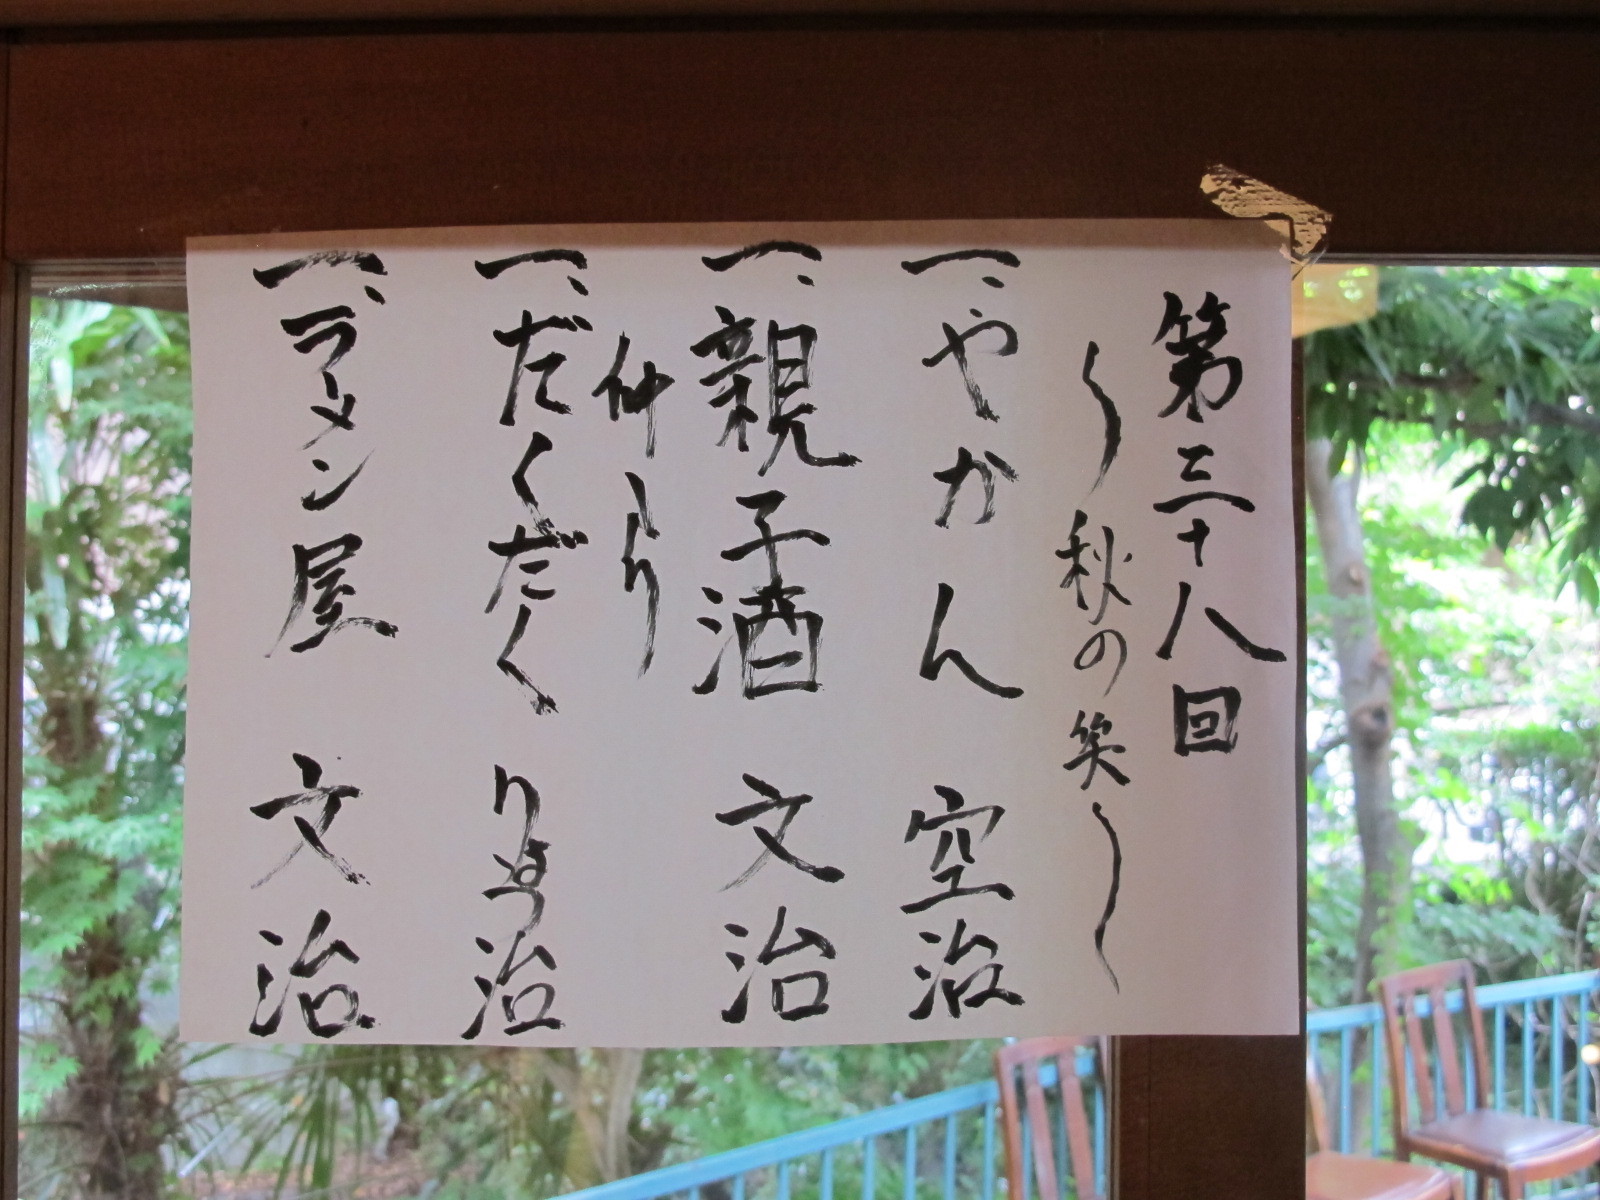 第三十八回
〜秋の笑〜
一、やかん 空治
一、親子酒 文治
仲入り
一、だくだく り 治
一、ラーメン屋 文治